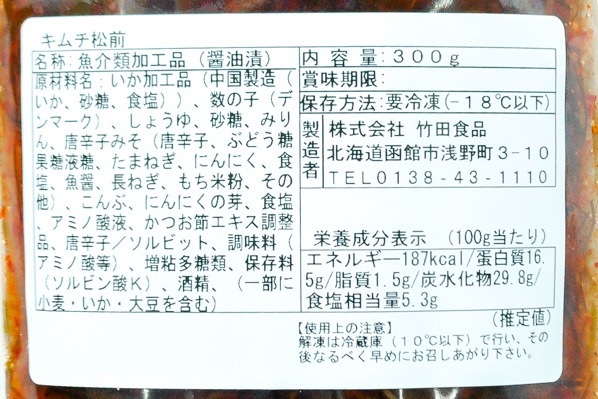 キムチ松前
名称:魚介類加工品(醤油漬)
原材料名:いか加工品(中国製造(
いか、砂糖、食塩))、数の子(デ
ンマーク)、しょうゆ、砂糖、みり
ん、唐辛子みそ(唐辛子、ぶどう糖
果糖液糖、たまねぎ、にんにく、食
塩、魚醤、長ねぎ、もち米粉、その
他)、こんぶ、にんにくの芽、食塩
、アミノ酸液、かつお節エキス調整
品、唐辛子/ソルビット、調味料(
アミノ酸等)、増粘多糖類、保存料
(ソルビン酸K)、酒精、(一部に
小麦・いか・大豆を含む)
内容量:300g
賞味期限:
保存方法:要冷凍(-18℃以下)
製造者
株式会社 竹田食品
北海道函館市浅野町3-10
TEL0138-43-1110
栄養成分表示 (100g当たり)
エネルギー187kcal/蛋白質16.
5g/脂質1.5g/炭水化物29.8g/
食塩相当量5.3g
(推定値)
【使用上の注意】
解凍は冷蔵庫(10℃以下)で行い、その
後なるべく早めにお召しあがり下さい。